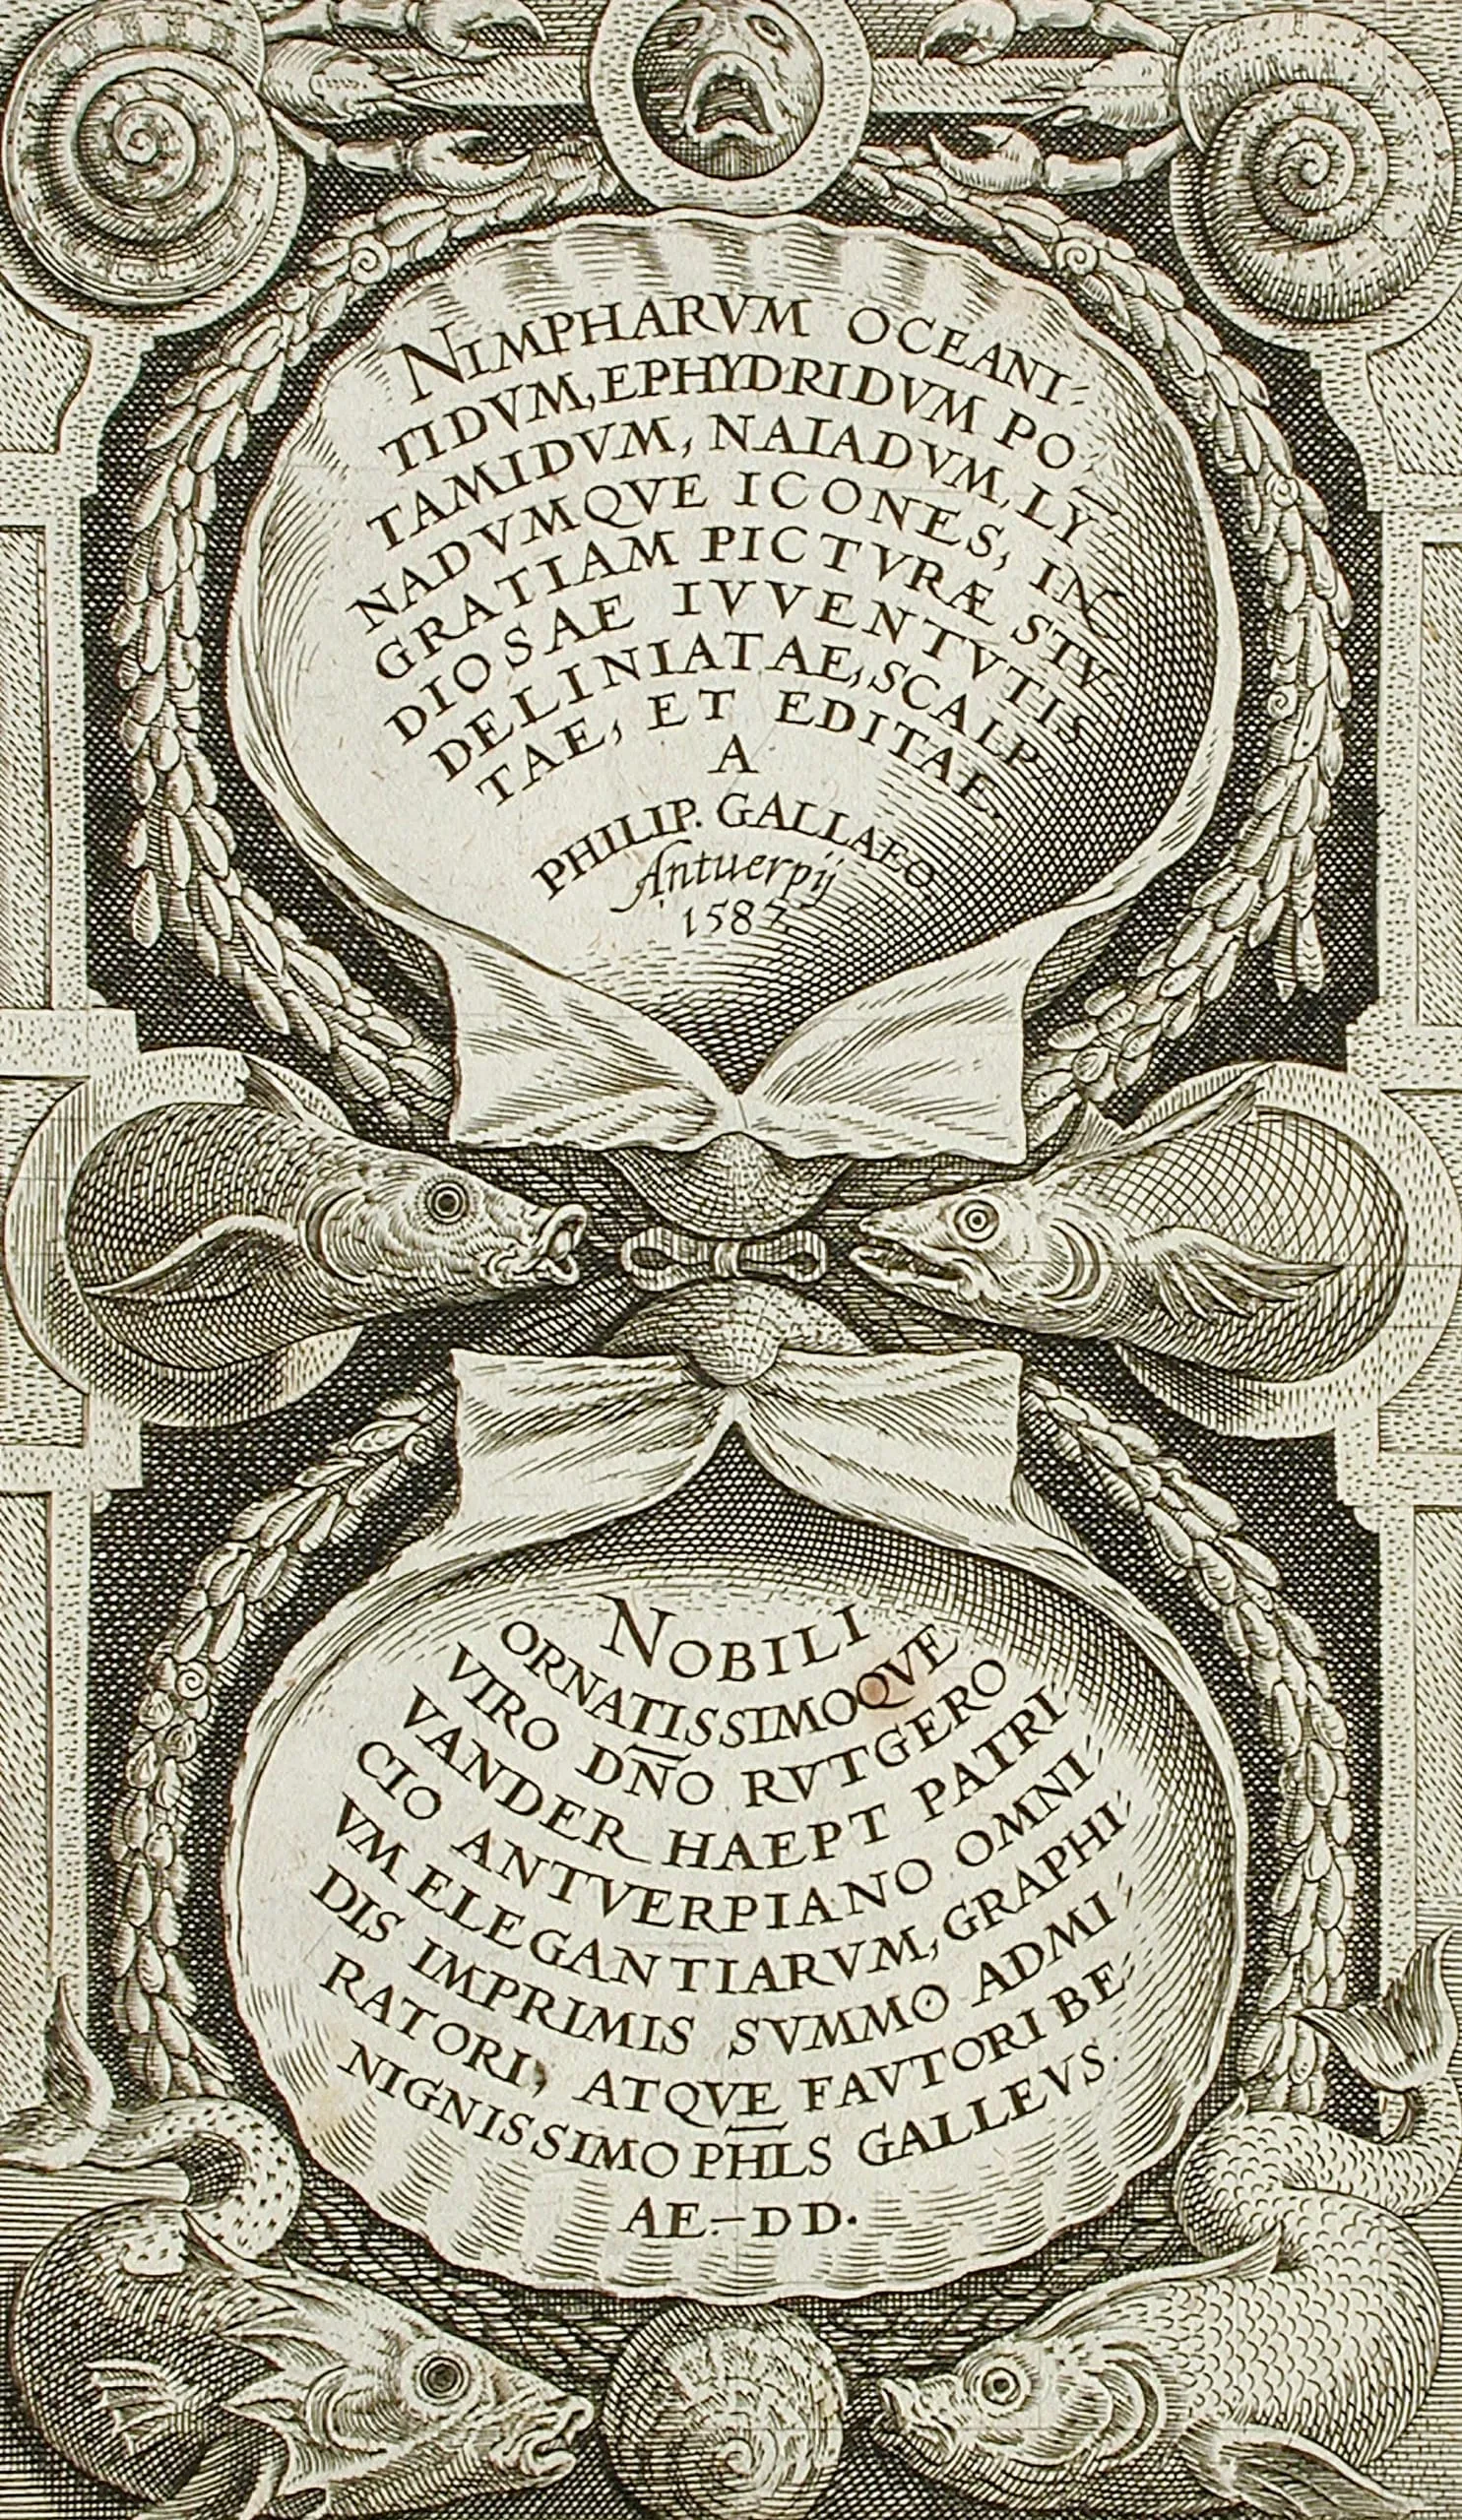 NIMPHARVM OCEANI-
TIDVM, EPHYDRIDVM PO-
TAMIDVM, NAIADVM, LY-
NADVMQVE ICONES, IN
GRATIAM PICTVRÆ STV-
DIOSAE IVVENTVTIS
DELINIATAE, SCALP-
TAE, ET EDITAE,
A
PHILIP. GALLAEO
Antuerpij
1587
NOBILI
ORNATISSIMOQVE
VIRO DÑO RVTGERO
VANDER HAEPT PATRI-
CIO ANTVERPIANO OMNI-
VM ELEGANTIARVM, GRAPHI-
DIS IMPRIMIS SVMMO ADMI-
RATORI, ATQVE FAVTORI BE-
NIGNISSIMO PHLS GALLEVS.
AE.-DD.